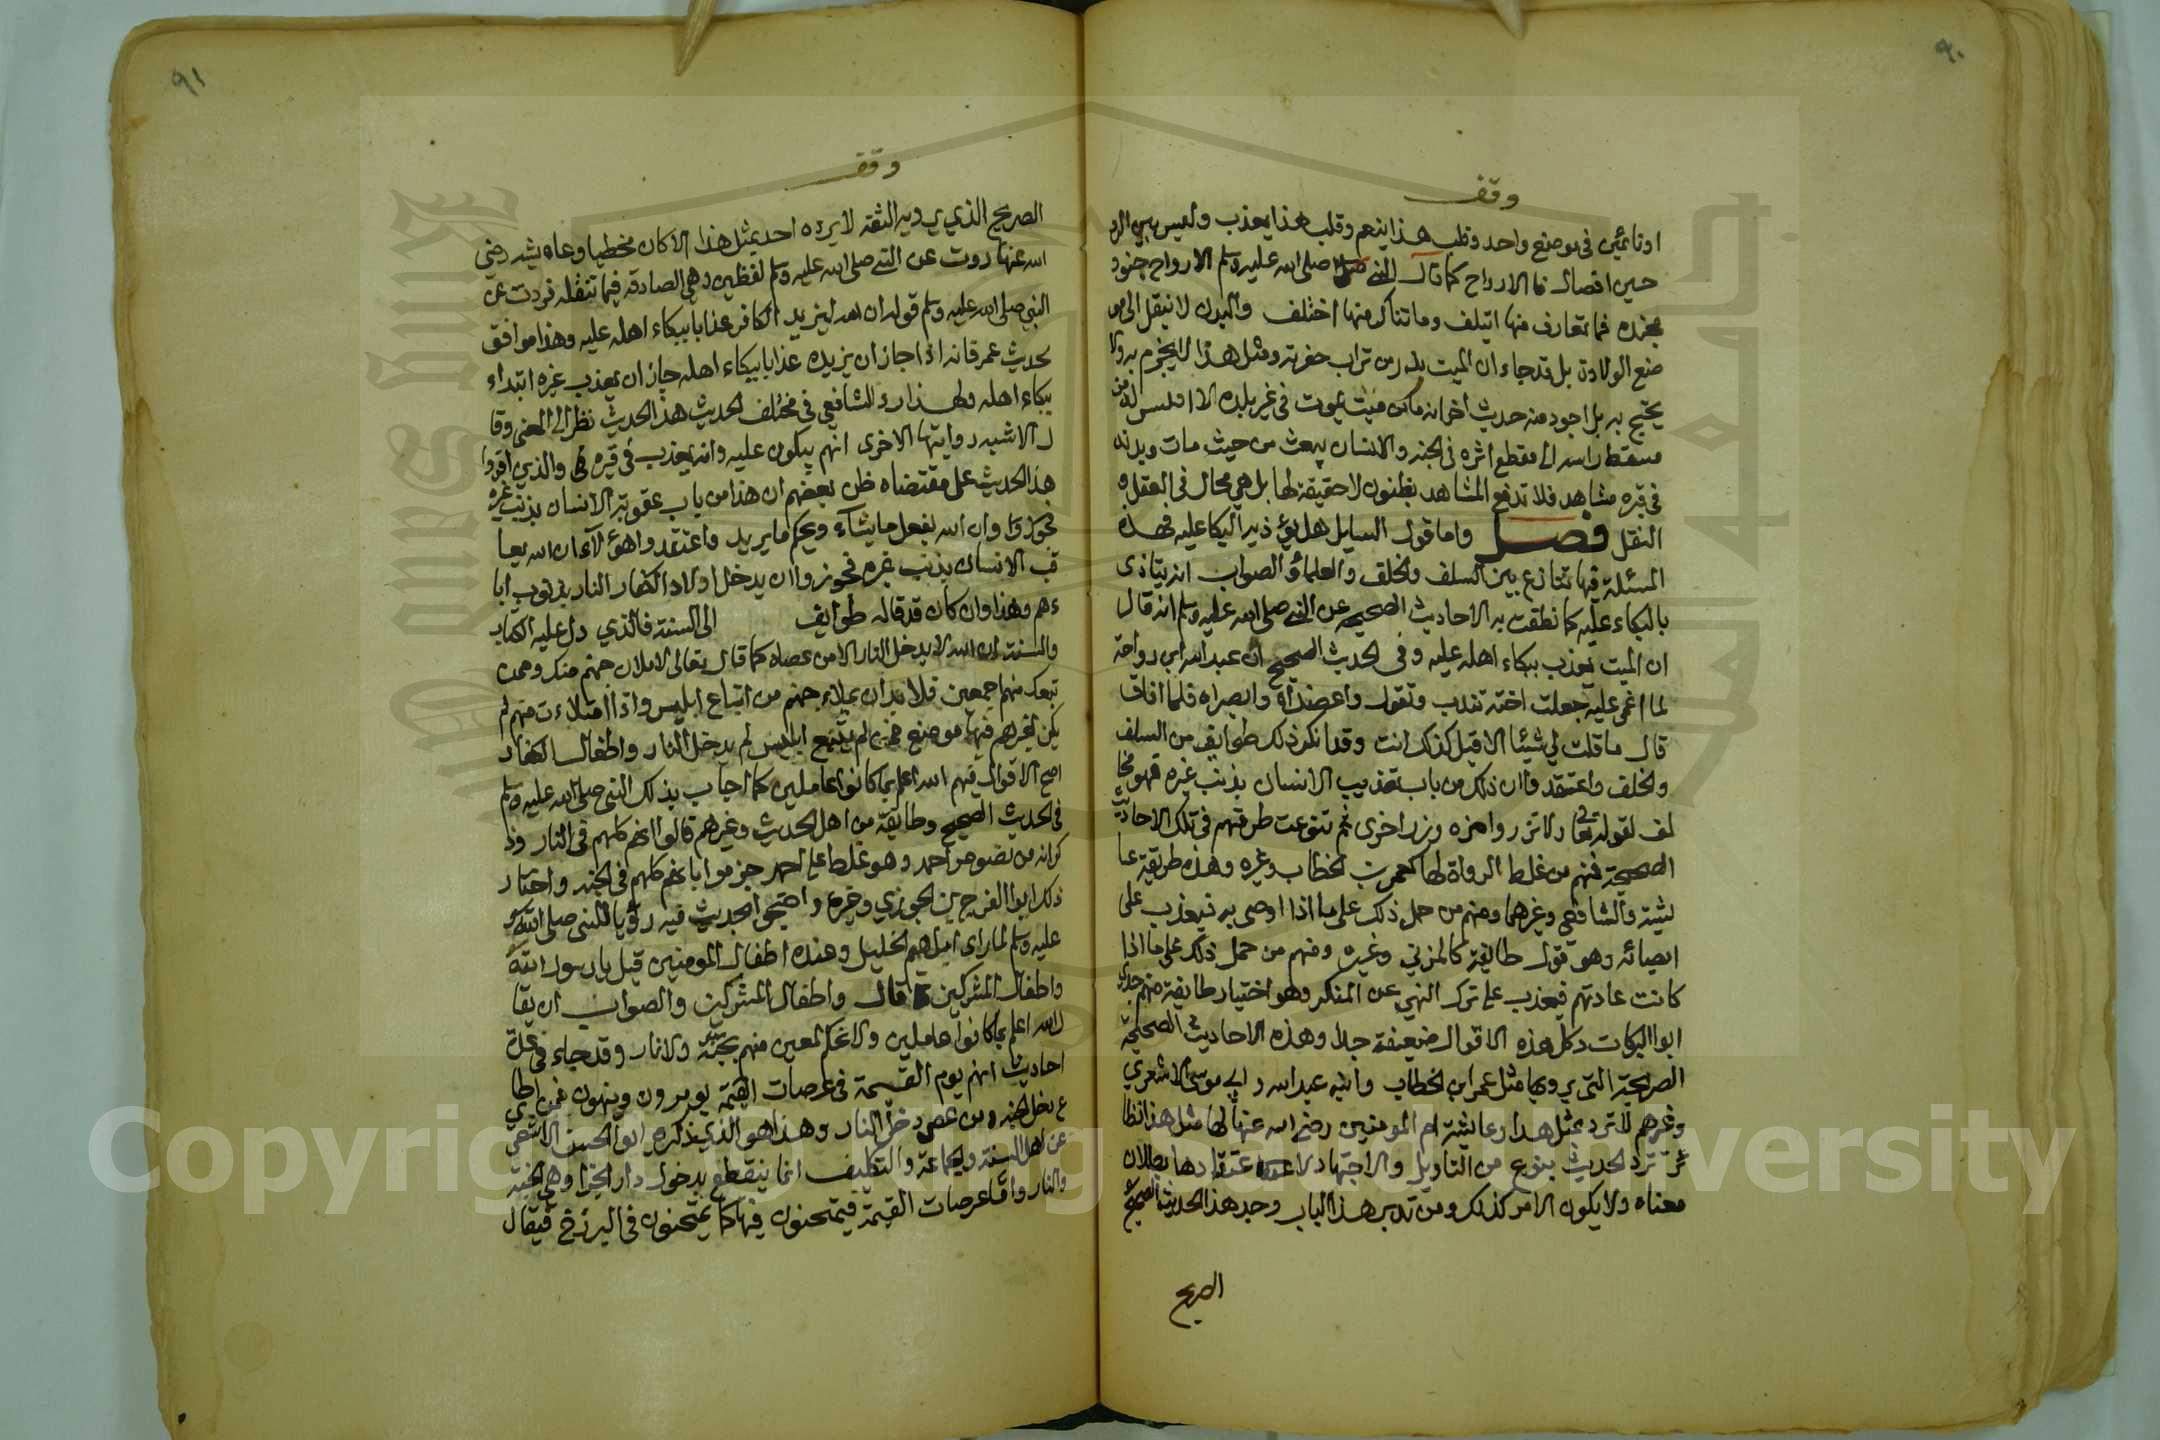 ٩٠
وقف
او نائمين فى موضع واحد وقلب هذا ينعم وقلب هذا يعذب وليس بين الرو
حين اتصال فالارواح كما قال النبي صلى الله عليه وسلم الارواح جنود
مجنده فما تعارف منها ايتلف وما تناكر منها اختلف والبدن لا ينقل الى مو
ضع الولادة بل قد جاء ان الميت يذر من تراب حفرته ومثل هذا لا يجزم به ولا
يحتج به بل اجود منه حديث اخر انه ما من ميت يموت فى غير بلده الا اقيس له من
مسقط راسه الى مقطع اثره فى الجنه والانسان يبعث من حيث مات وبدنه
فى قبره مشاهد فلا تدفع المشاهد بظنون لا حقيقة لها بل هي محال فى العقل و
النقل فصل واما قول السايل هل يؤذيه البكا عليه فهذه
المسئلة فيها تنازع بين السلف والخلف والعلماء والصواب انه يتاذى
بالبكاء عليه كما نطقت به الاحاديث الصحيحه عن النبي صلى الله عليه وسلم انه قال
ان الميت يعذب ببكاء اهله عليه وفى الحديث الصحيح ان عبد الله ابن رواحة
لما اغمى عليه جعلت اخته تندب وتقول واعضداه وابصراه فلما افاق
قال ما قلت لي شيئا الا قيل كذلك انت وقد انكر ذلك طوايف من السلف
والخلف واعتقدوا ان ذلك من باب تعذيب الانسان بذنب غيره فهو مخا
لف لقوله تعالى ولا تزر وازره وزر اخرى ثم تنوعت طرقهم فى تلك الاحاديث
الصحيحة فمنهم من غلط الرواة لها كعمر بن الخطاب وغيره وهذه طريقة عا
ئشة والشافعي وغيرهما ومنهم من حمل ذلك على ما اذا اوصى به فيعذب على
ايصائه وهو قول طايفة كالمزني وغيره ومنهم من حمل ذلك على ما اذا
كانت عادتهم فيعذب على ترك النهي عن المنكر وهو اختيار طايفة منهم جدي
ابو البركات وكل هذه الاقوال ضعيفة جدا وهذه الاحاديث الصحيحة
الصريحة التى يرويها مثل عمر ابن الخطاب وابنه عبد الله وابي موسى الاشعري
وغيرهم لا ترد بمثل هذا وعايشة ام المومنين رضي الله عنها لها مثل هذا نظا
ئر ترد الحديث بنوع من التاويل والاجتهاد لاعتقادها بطلان
معناه ولا يكون الامر كذلك ومن تدبر هذا الباب وجد هذا الحديث الصحيح
الصريح
٩١
وقف
الصريح الذي يرويه الثقة لا يرده احد بمثل هذا الا كان مخطيا وعايشه رضي
الله عنها روت عن النبي صلى الله عليه وسلم لفظين وهي الصادقه فيما تنقله فروت عن
النبي صلى الله عليه وسلم قوله ان الله ليزيد الكافر عذابا ببكاء اهله عليه وهذا موافق
لحديث عمر فانه اذا جاز ان يزيده عذابا ببكاء اهله جاز ان يعذب غيره ابتداء
ببكاء اهله ولهذا رد الشافعي فى مختلف الحديث هذا الحديث نظرا الى المعنى وقا
ل الاشبه روايتها الاخرى انهم يبكون عليه وانه يعذب فى قبره والذين اقروا
هذا الحديث على مقتضاه ظن بعضهم ان هذا من باب عقوبة الانسان بذنب غيره
فجوزوا وان الله يفعل ما يشاء ويحكم ما يريد واعتقدوا هؤلاء ان الله يعا
قب الانسان بذنب غيره فجوزوا ان يدخل اولاد الكفار النار بذنوب ابا
ءهم وهذا وان كان قد قاله طوايف الى السنة فالذي دل عليه الكتاب
والسنة ان الله لا يدخل النار الا من عصاه كما قال تعالى لاملان جهنم منك وممن
تبعك منهم اجمعين فلا بد ان يملاء جهنم من اتباع ابليس واذا امتلاءت منهم لم
يكن لغيرهم فيها موضع فمن لم يتبع ابليس لم يدخل النار واطفال الكفار
اصح الاقوال فيهم الله اعلم بما كانوا عاملين كما اجاب بذلك النبي صلى الله عليه وسلم
فى الحديث الصحيح وطايفة من اهل الحديث وغيرهم قالوا انهم كلهم فى النار وذ
كر انه من نصوص احمد وهو غلط على احمد جزموا بانهم كلهم فى الجنه واختار
ذلك ابو الفرج بن الجوزي وغيره واحتجوا بحديث فيه رؤيا النبى صلى الله
عليه وسلم لما راى ابراهيم الخليل وعنده اطفال المومنين قيل يا رسول الله
واطفال المشركين قال واطفال المشركين والصواب ان يقا
ل الله اعلم بما كانوا عاملين ولا نحكم لمعين منهم بجنة ولا نار وقد جاء فى عدة
احاديث انهم يوم القيمة فى عرصات القيمة يومرون وينهون فمن اطا
ع دخل الجنه ومن عصى دخل النار وهذا هو الذي ذكره ابو الحسن الاشعري
عن اهل السنة والجماعة والتكليف انما ينقطع بدخول دار الجزا وهى الجنة
والنار واما عرصات القيمة فيمتحنون فيها كما يمتحنون فى البرزخ فيقال
Copyright © King Saud University